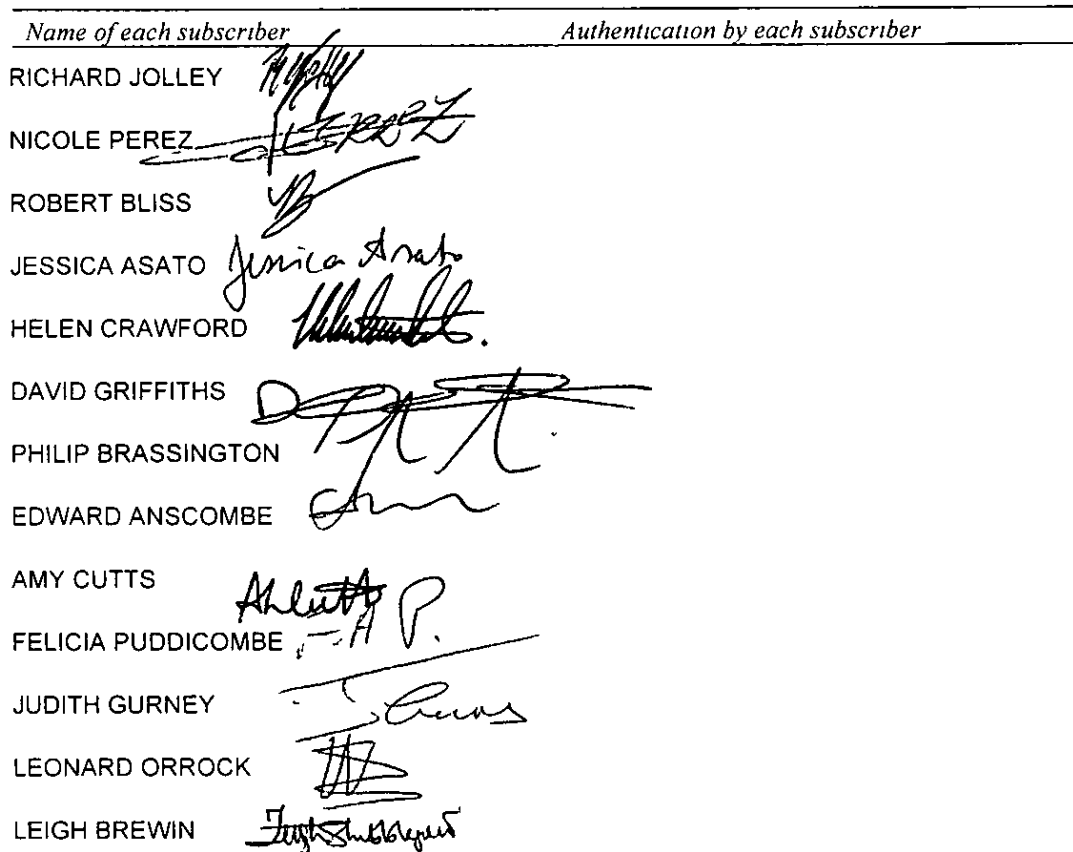 Name of each subscriber Authentication by each subscriber
RICHARD JOLLEY
NICOLE PEREZ PEREZ
ROBERT BLISS
JESSICA ASATO Jessica Asato
HELEN CRAWFORD
DAVID GRIFFITHS
PHILIP BRASSINGTON
EDWARD ANSCOMBE
AMY CUTTS
FELICIA PUDDICOMBE F.A P.
JUDITH GURNEY
LEONARD ORROCK
LEIGH BREWIN